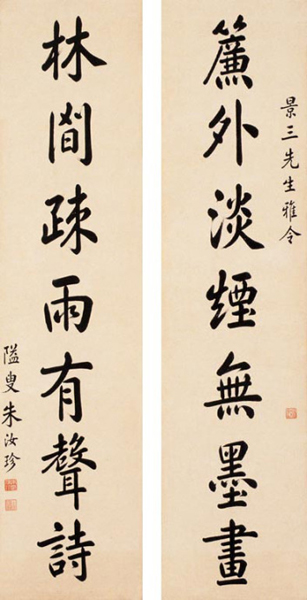 景三先生雅令
簾外淡煙無墨畫
林間疎雨有聲詩
隘叟朱汝珍